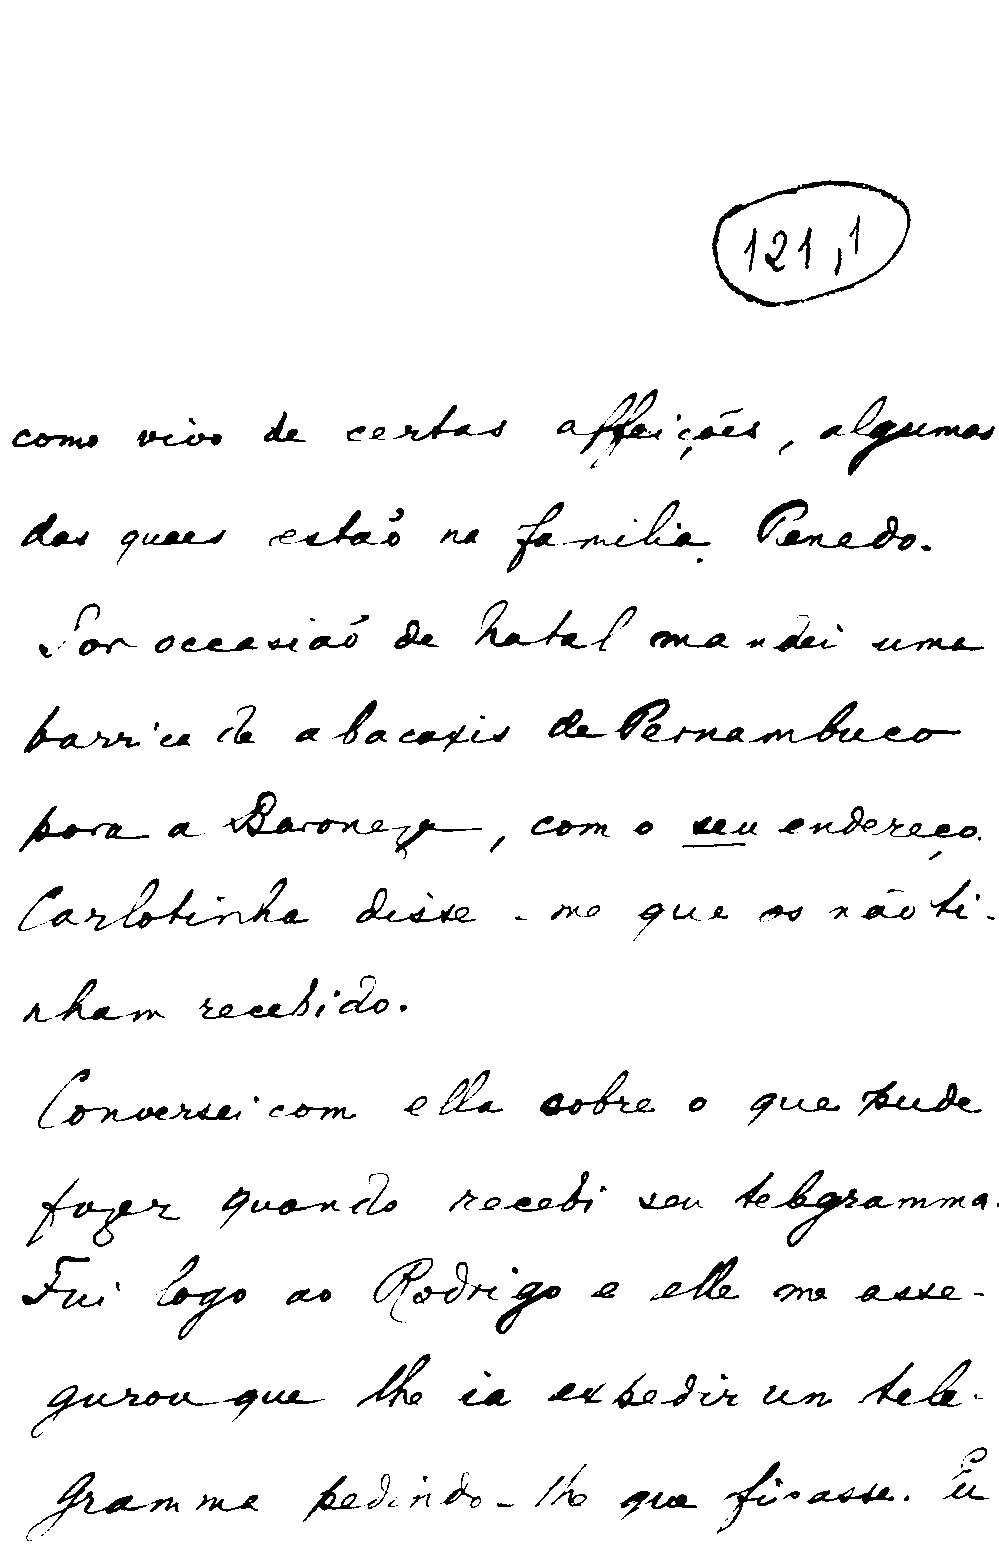 121,1
como vivo de certas affeições, algumas
das quaes estaõ na familia Penedo.
Por occasiaõ de Natal mandei uma
barrica de abacaxis de Pernambuco
para a Baroneza, com o seu endereço.
Carlotinha disse-me que os não ti-
nham recebido.
Conversei com ella sobre o que pude
fazer quando recebi seu telegramma.
Fui logo ao Rodrigo e elle me asse-
gurou que lhe ia expedir un tele-
gramma pedindo-lhe que ficasse. Eu